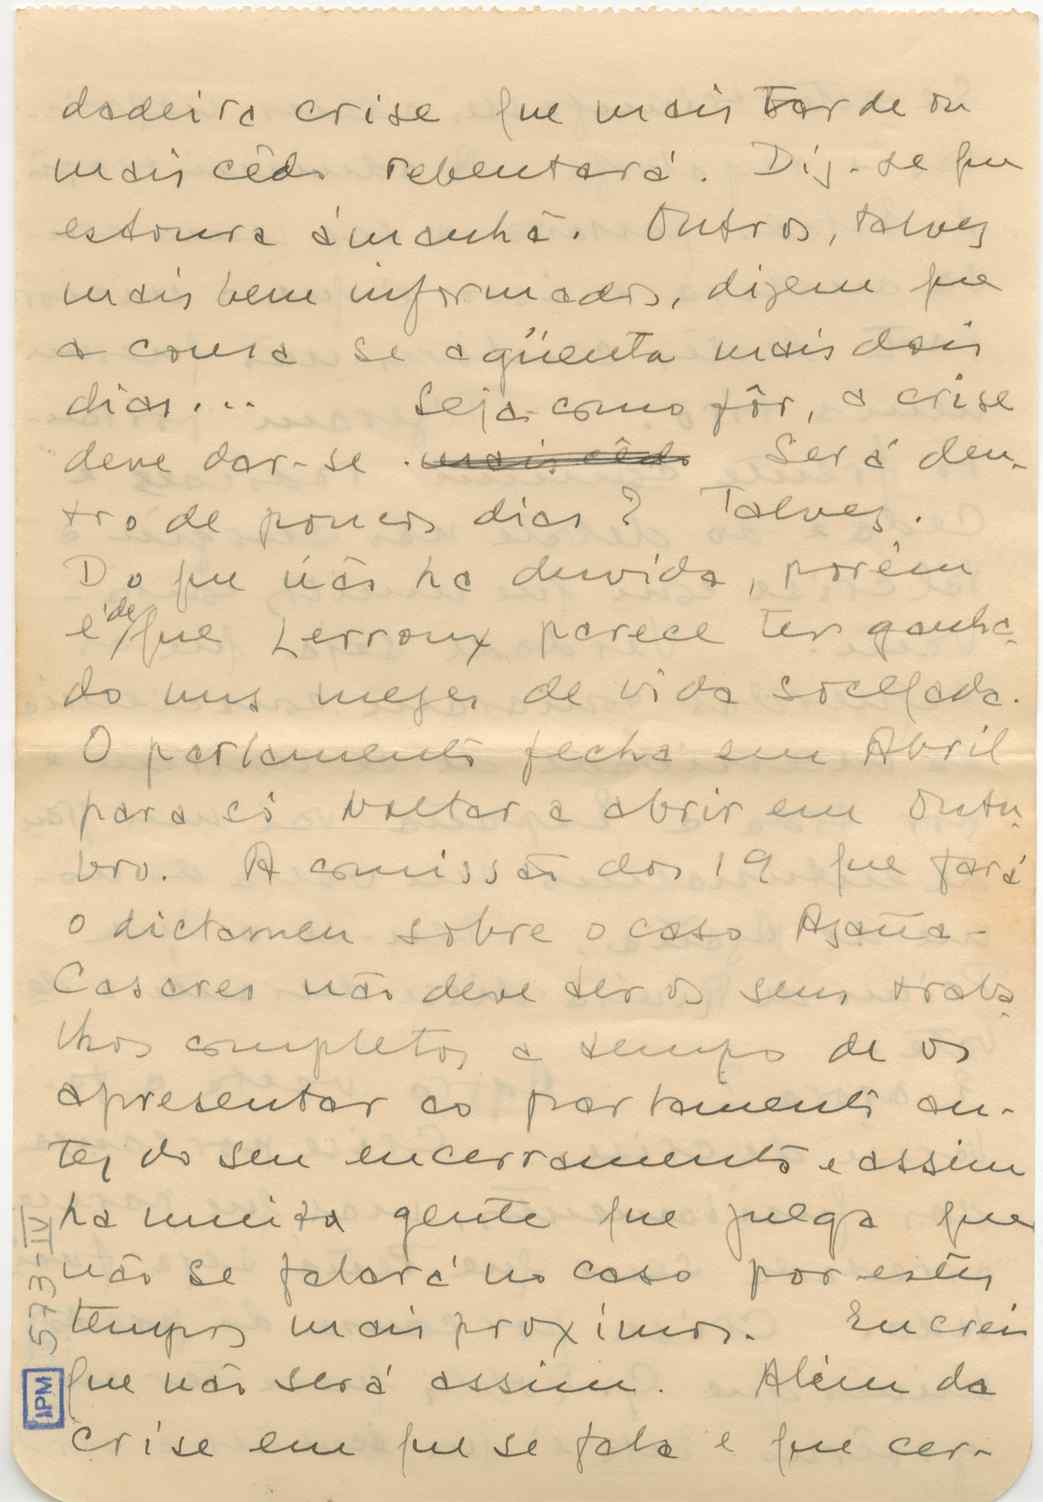 dadeira crise que mais tarde ou
mais cêdo rebentará. Diz-se que
estoura ámanhã. Outros, talvez
mais bem informados, dizem que
a cousa se agüenta mais dois
dias... Seja como fôr, a crise
deve dar-se mais cêdo Será den-
tro de poucos dias? Talvez.
Do que não ha duvida, porém
é de que Lerroux parece ter ganha-
do uns mezes de vida socegada.
O parlamento fecha em Abril
para só voltar a abrir em Outu-
bro. A comissão dos 19 que fará
o dictamen sobre o caso Azaña-
Casares não deve ter os seus traba-
lhos completos a tempo de os
apresentar ao parlamento an-
tez do seu encerramento e assim
ha muita gente que julga que
não se falará no caso por estes
tempos mais proximos. Eu creio
que não será assim. Além da
crise em que se fala e que cer-
573-IV
IPM